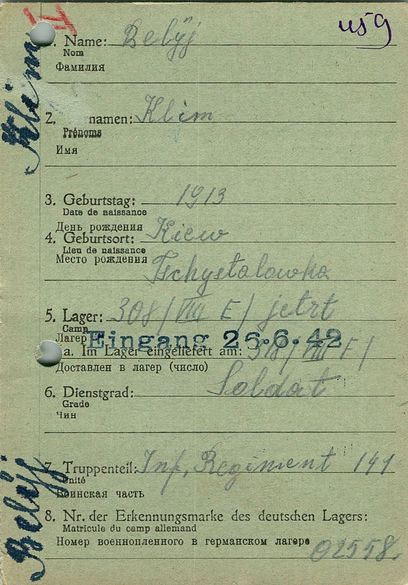 Klim
V
usg
1. Name: Belÿj
Nom
Фамилия
2. namen: Klim
Prénoms
Имя
3. Geburtstag: 1913
Date de naissance
День рождения
4. Geburtsort: Kiew
Lieu de naissance
Место рождения
Tschystalowka
5. Lager: 308/VIII E/ jetzt
Camp
Лагерь
Eingang 26.6.42
a. Im Lager eingeliefert am: 318/VIII F/
Доставлен в лагер (число)
6. Dienstgrad: Soldat
Grade
Чин
Belÿj
7. Truppenteil: Inf. Regiment 141
Unité
Воинская часть
8. Nr. der Erkennungsmarke des deutschen Lagers:
Matricule du camp allemand
Номер военнопленного в германском лагере
02558.